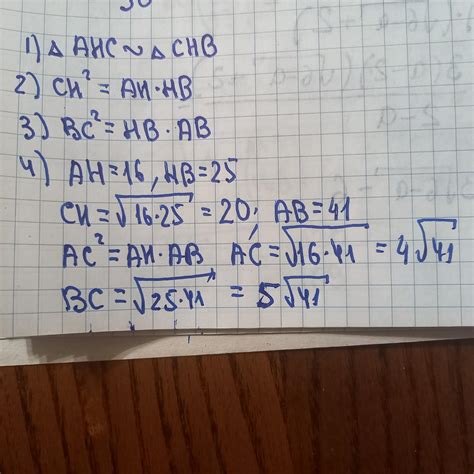 1) △ AHC ~ △ CHB
2) CH² = AH·HB
3) BC² = HB·AB
4) AH=16, HB=25
CH=√16·25 = 20; AB=41
AC² = AH·AB AC=√16·41 = 4√41
BC = √25·41 = 5√41